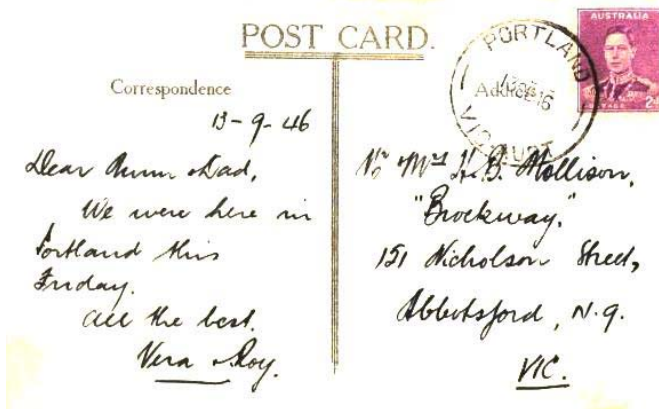 POST CARD.
Correspondence
13-9-46
Dear Mum & Dad,
We were here in
Portland this
Friday.
All the best.
Vera & Roy.
AUSTRALIA
POSTAGE 2D
PORTLAND
VIC AUST
Address
Mr & Mrs H. B. Mollison,
"Brockway,"
151 Nicholson Street,
Abbotsford, N.9.
VIC.